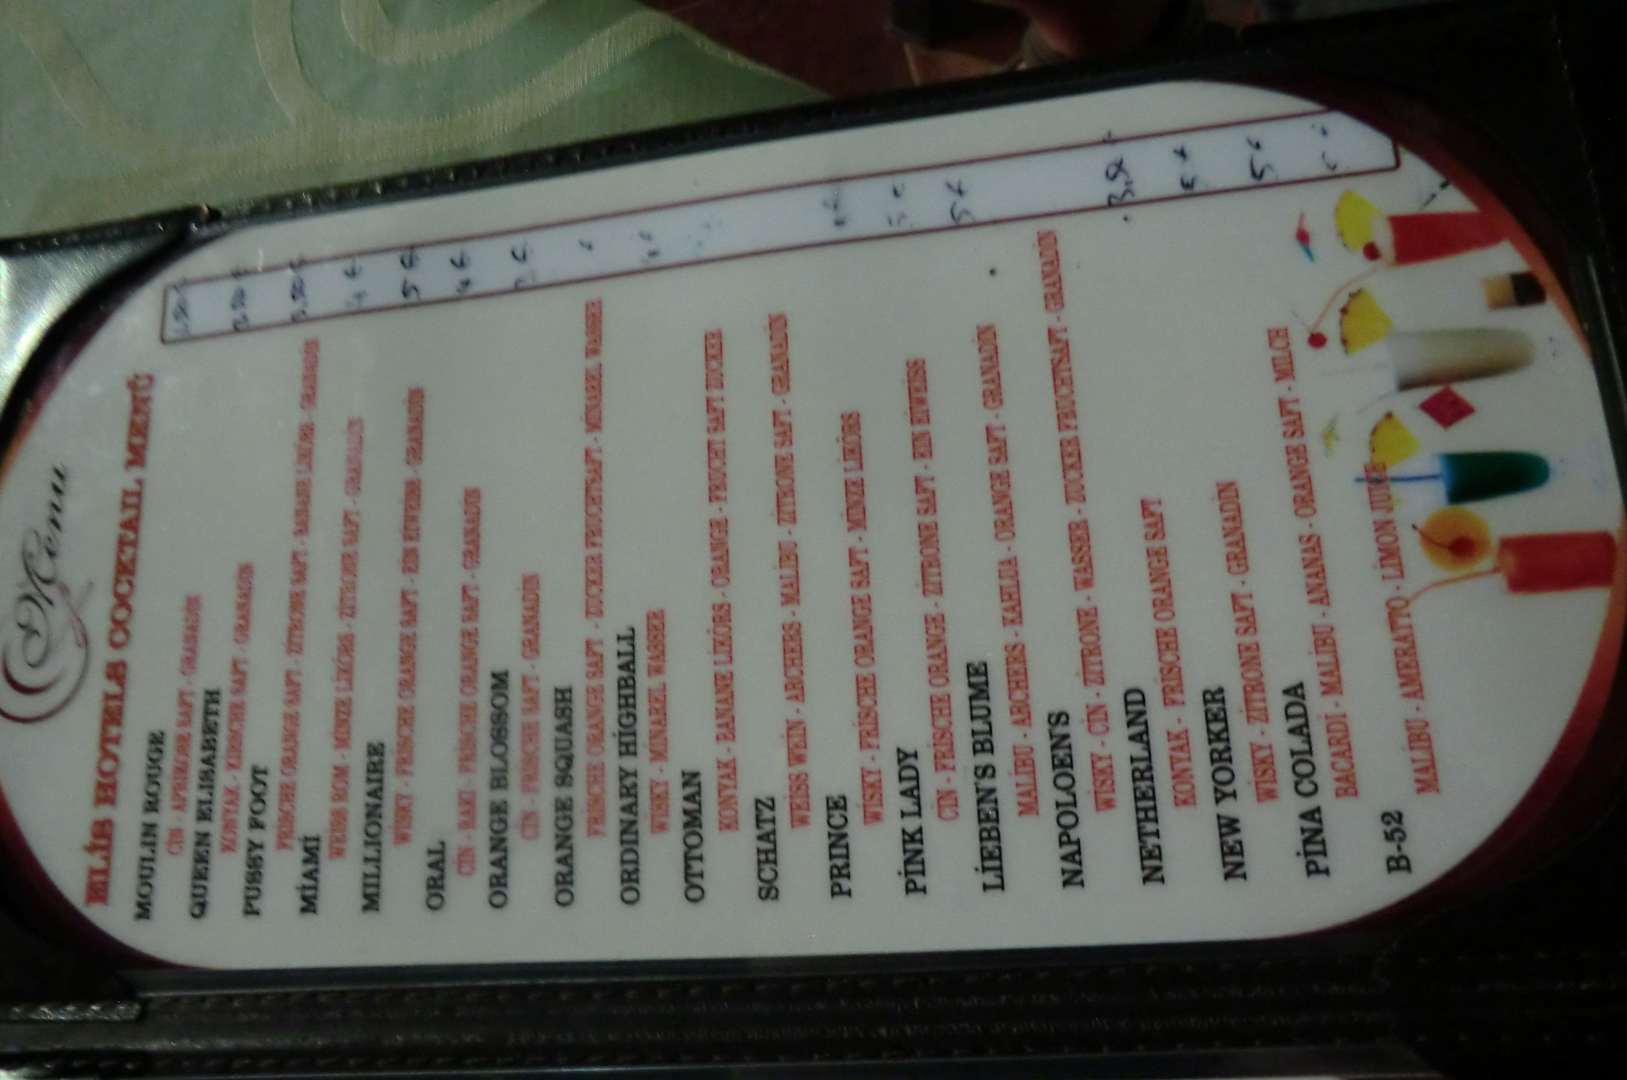 Menu
ELİS HOTELS COCKTAIL MENÜ
MOULIN ROUGE
CIN - APRIKOSE SAFT - GRANADIN
QUEEN ELISABETH
KONYAK - KIRSCHE SAFT - GRANADIN
PUSSY FOOT
FRISCHE ORANGE SAFT - ZITRONE SAFT - BANANE LIKÖRS - GRANADIN
MİAMİ
WEISS ROM - MINZE LIKÖRS - ZITRONE SAFT - GRANADIN
MILLIONAIRE
WISKY - FRISCHE ORANGE SAFT - EIN EIWEISS - GRANADIN
5 €
ORAL
CIN - RAKI - FRISCHE ORANGE SAFT - GRANADIN
4 €
ORANGE BLOSSOM
CIN - FRISCHE SAFT - GRANADIN
ORANGE SQUASH
FRISCHE ORANGE SAFT - ZUCKER FRUCHTSAFT - MİNAREL WASSER
ORDINARY HİGHBALL
WISKY - MINAREL WASSER
OTTOMAN
KONYAK - BANANE LİKÖRS - ORANGE - FRUCHT SAFT ZUCKER
SCHATZ
WEISS WEİN - ARCHERS - MALİBU - ZİTRONE SAFT - GRANADİN
PRINCE
WİSKY - FRİSCHE ORANGE SAFT - MİNZE LİKÖRS
PİNK LADY
CİN - FRİSCHE ORANGE - ZİTRONE SAFT - EIN EİWEISS
LİEBEN'S BLUME
5 €
MALİBU - ARCHERS - KAHLUA - ORANGE SAFT - GRANADİN
NAPOLOENS
WİSKY - CİN - ZİTRONE - WASSER - ZUCKER FRUCHTSAFT - GRANADİN
NETHERLAND
KONYAK - FRİSCHE ORANGE SAFT
NEW YORKER
WİSKY - ZİTRONE SAFT - GRANADİN
PİNA COLADA
5 €
BACARDİ - MALİBU - ANANAS - ORANGE SAFT - MILCH
B-52
MALİBU - AMERATTO - LİMON JUICE